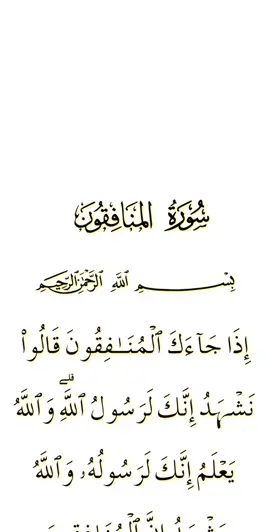 سُورَةُ المُنَافِقُونَ
بِسْمِ اللَّهِ الرَّحْمَٰنِ الرَّحِيمِ
إِذَا جَآءَكَ ٱلْمُنَـٰفِقُونَ قَالُوا۟
نَشْهَدُ إِنَّكَ لَرَسُولُ ٱللَّهِ ۗ وَٱللَّهُ
يَعْلَمُ إِنَّكَ لَرَسُولُهُۥ وَٱللَّهُ
يَشْهَدُ إِنَّ ٱلْمُنَـٰفِقِينَ